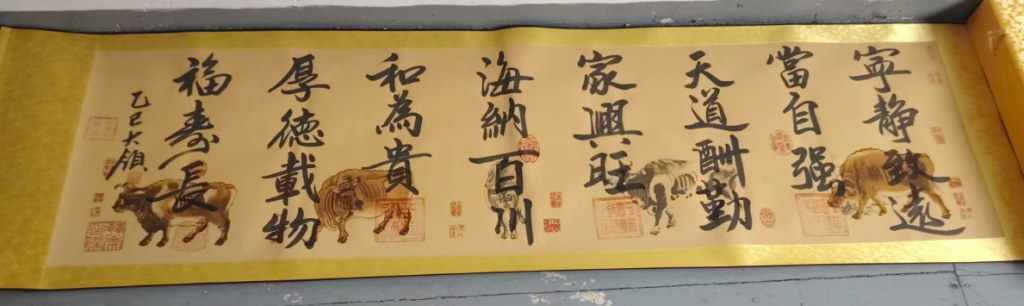 寧静致遠
當自强
天道酬勤
家興旺
海納百川
和為貴
厚德載物
福壽長
乙巳大領